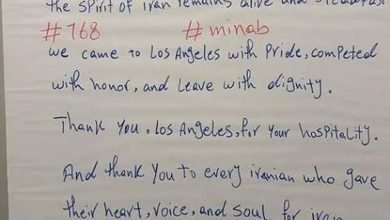 the spirit of iran remains alive and steadfast
#768 #minab
we came to Los Angeles with Pride, competed
with honor, and leave with dignity.
Thank You, Los Angeles, for Your hospitality.
And thank you to every iranian who gave
their heart, voice, and soul for iran